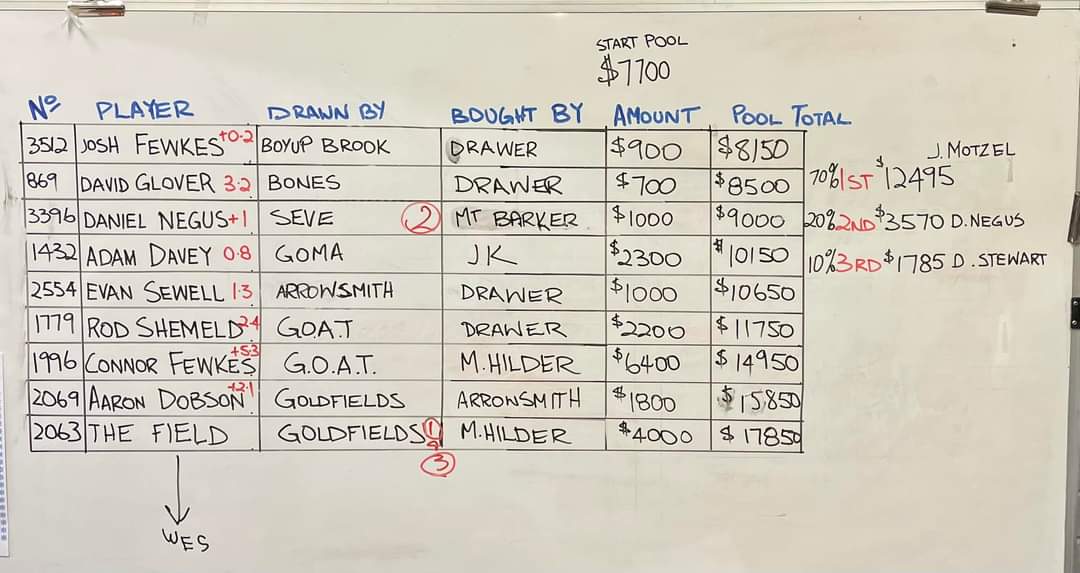 START POOL
$7700
Nº PLAYER DRAWN BY BOUGHT BY AMOUNT POOL TOTAL
3512 JOSH FEWKES +0.2 BOYUP BROOK DRAWER $900 $8150
J. MOTZEL
869 DAVID GLOVER 3.2 BONES DRAWER $700 $8500 70% 1ST $12495
3396 DANIEL NEGUS +1 SEVE 2 MT BARKER $1000 $9000 20% 2ND $3570 D. NEGUS
1432 ADAM DAVEY 0.8 GOMA JK $2300 $10150 10% 3RD $1785 D. STEWART
2554 EVAN SEWELL 1.3 ARROWSMITH DRAWER $1000 $10650
1779 ROD SHEMELD 2.4 G.O.A.T DRAWER $2200 $11750
1996 CONNOR FEWKES +5.3 G.O.A.T. M.HILDER $6400 $14950
2069 AARON DOBSON +2.1 GOLDFIELDS ARRONSMITH $1800 $15850
2063 THE FIELD GOLDFIELDS 1 M.HILDER $4000 $17850
3
WES